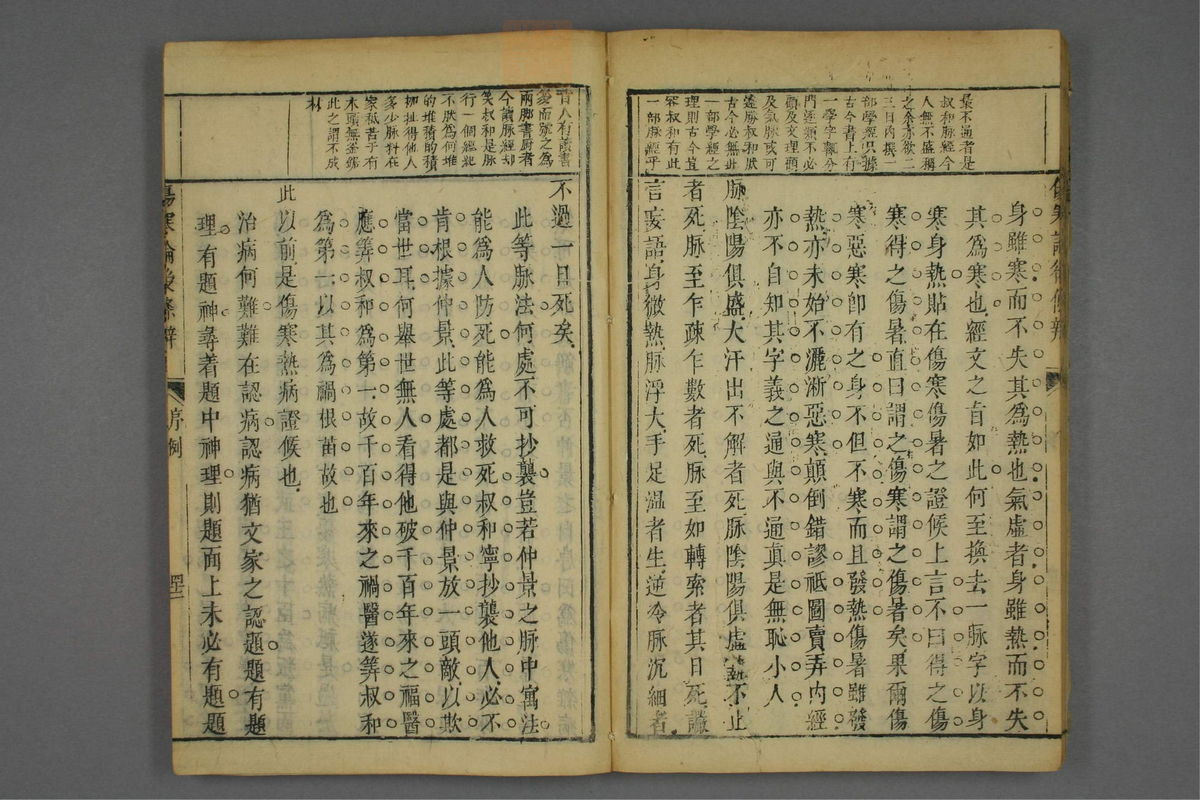 最不通者是
叔和脈經今
人無不盛稱
之余亦欲二
三日內撰一
部學經只據
古今書上有
一學字輙分
門遂類不必
顧及文理頭
及氣脈或可
遂勝叔和朕
古今必無此
一部學經之
理則古今豈
容叔和有此
一部脈經乎
身雖寒而不失其為熱也氣虛者身雖熱而不失
其為寒也經文之旨如此何至換去一脈字以身
寒身熱貼在傷寒傷暑之證候上言不曰得之傷
寒得之傷暑直曰謂之傷寒謂之傷暑矣果爾傷
寒惡寒卽有之身不但不寒而且發熱傷暑雖發
熱亦未始不灑淅惡寒顛倒錯謬祗圖賣弄內經
亦不自知其字義之通與不通真是無恥小人
脈陰陽俱盛大汗出不解者死脈陰陽俱虛熱不止
者死脈至乍疎乍數者死脈至如轉索者其日死譫
言妄語身微熱脈浮大手足溫者生逆冷脈沉細者
傷寒論後條辨
昔人有讀書
多而號之為
兩脚書厨者
今讀脈經却
笑叔和是脈
行一個經紀
不朕為何堆
的堆積的積
抝扯得他人
多少脈料在
家秪苦于有
木頭無釜鋸
此之謂不成
材
不過一日死矣
此等脈法何處不可抄襲豈若仲景之脈中寓法
能為人防死能為人救死叔和寧抄襲他人必不
肯根據仲景此等處都是與仲景放一頭敵以欺
當世耳何舉世無人看得他破千百年來之福醫
應筭叔和為第一故千百年來之禍醫遂筭叔和
為第一以其為禍根苗故也
此以前是傷寒熱病證候也
治病何難難在認病認病猶文家之認題題有題
理有題神尋着題中神理則題面上未必有題題
傷寒論後條辨
序例